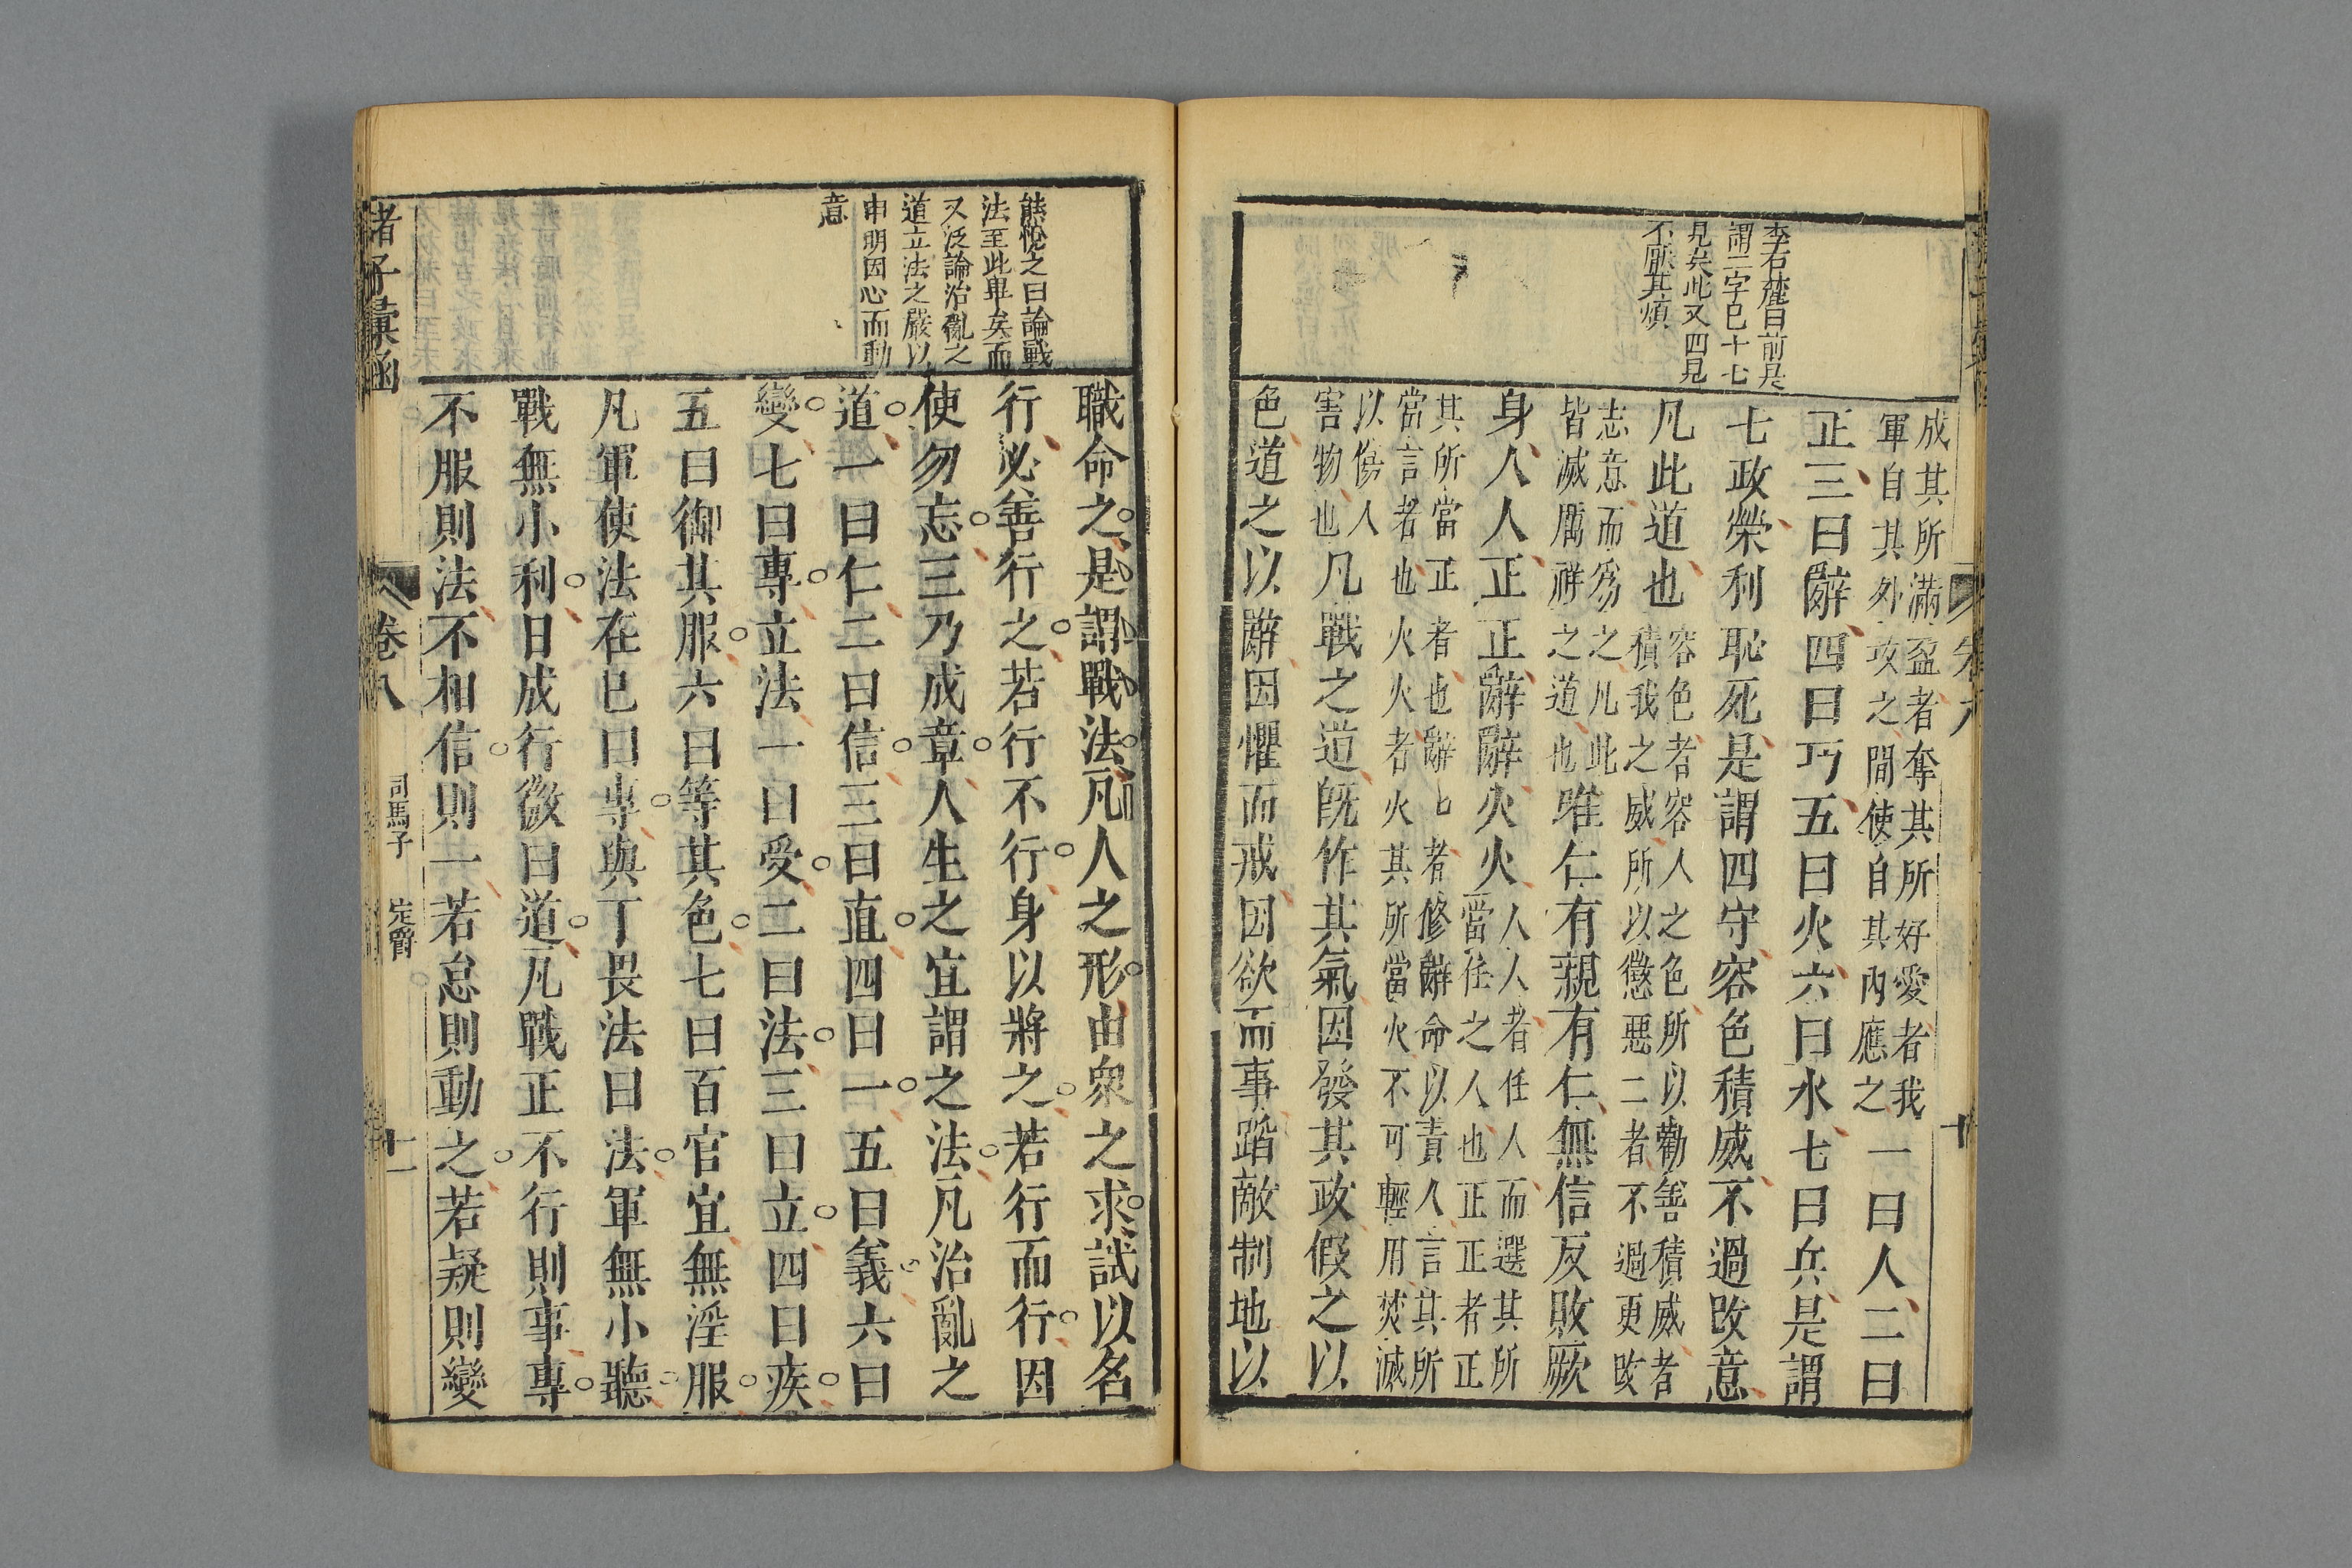 李石麓曰前是
謂二字已十七
見矣此又四見
不厭其煩
成其所滿盈者奪其所好愛者我
軍自其外攻之間使自其內應之
一曰人二曰
正三曰辭四曰巧五曰火六曰水七曰兵是謂
七政榮利恥死是謂四守容色積威不過改意
凡此道也
容色者容人之色所以勸善積威者
積我之威所以懲惡二者不過更改
志意而爲之凡此
皆滅厲祥之道也
唯仁有親有仁無信反敗厥
身人人正正辭辭火火
人人者任人而選其所
當任之人也正正者正
其所當正者也辭辭者修辭命以責人言其所
當言者也火火者火其所當火不可輕用焚滅
以傷人
害物也
凡戰之道旣作其氣因發其政假之以
色道之以辭因懼而戒因欲而事蹈敵制地以
十
熊悅之曰論戰
法至此畢矣而
又泛論治亂之
道立法之嚴以
申明因心而動
意
職命之是謂戰法凡人之形由衆之求試以名
行必善行之若行不行身以將之若行而行因
使勿忘三乃成章人生之宜謂之法凡治亂之
道一曰仁二曰信三曰直四曰一五曰義六曰
變七曰專立法一曰受二曰法三曰立四曰疾
五曰御其服六曰等其色七曰百官宜無淫服
凡軍使法在已曰專與丁畏法曰法軍無小聽
戰無小利日成行微曰道凡戰正不行則事專
不服則法不相信則一若怠則動之若疑則變
諸子彙函
卷八
司馬子
定爵
十一